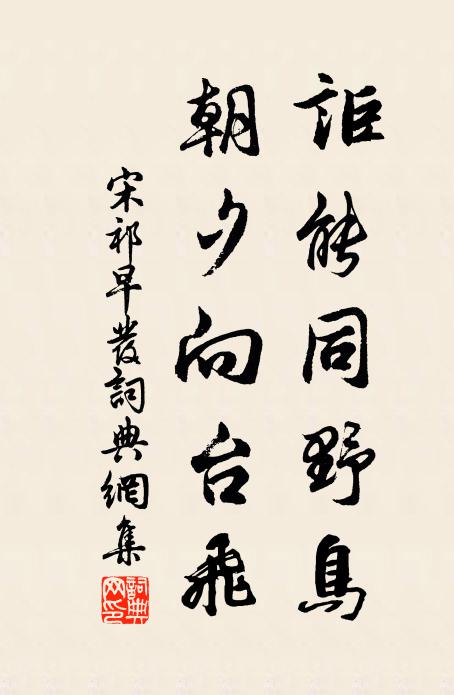 詎能同野鳥
朝夕向台飛
宋祁早發詞典網集
詞典
网印